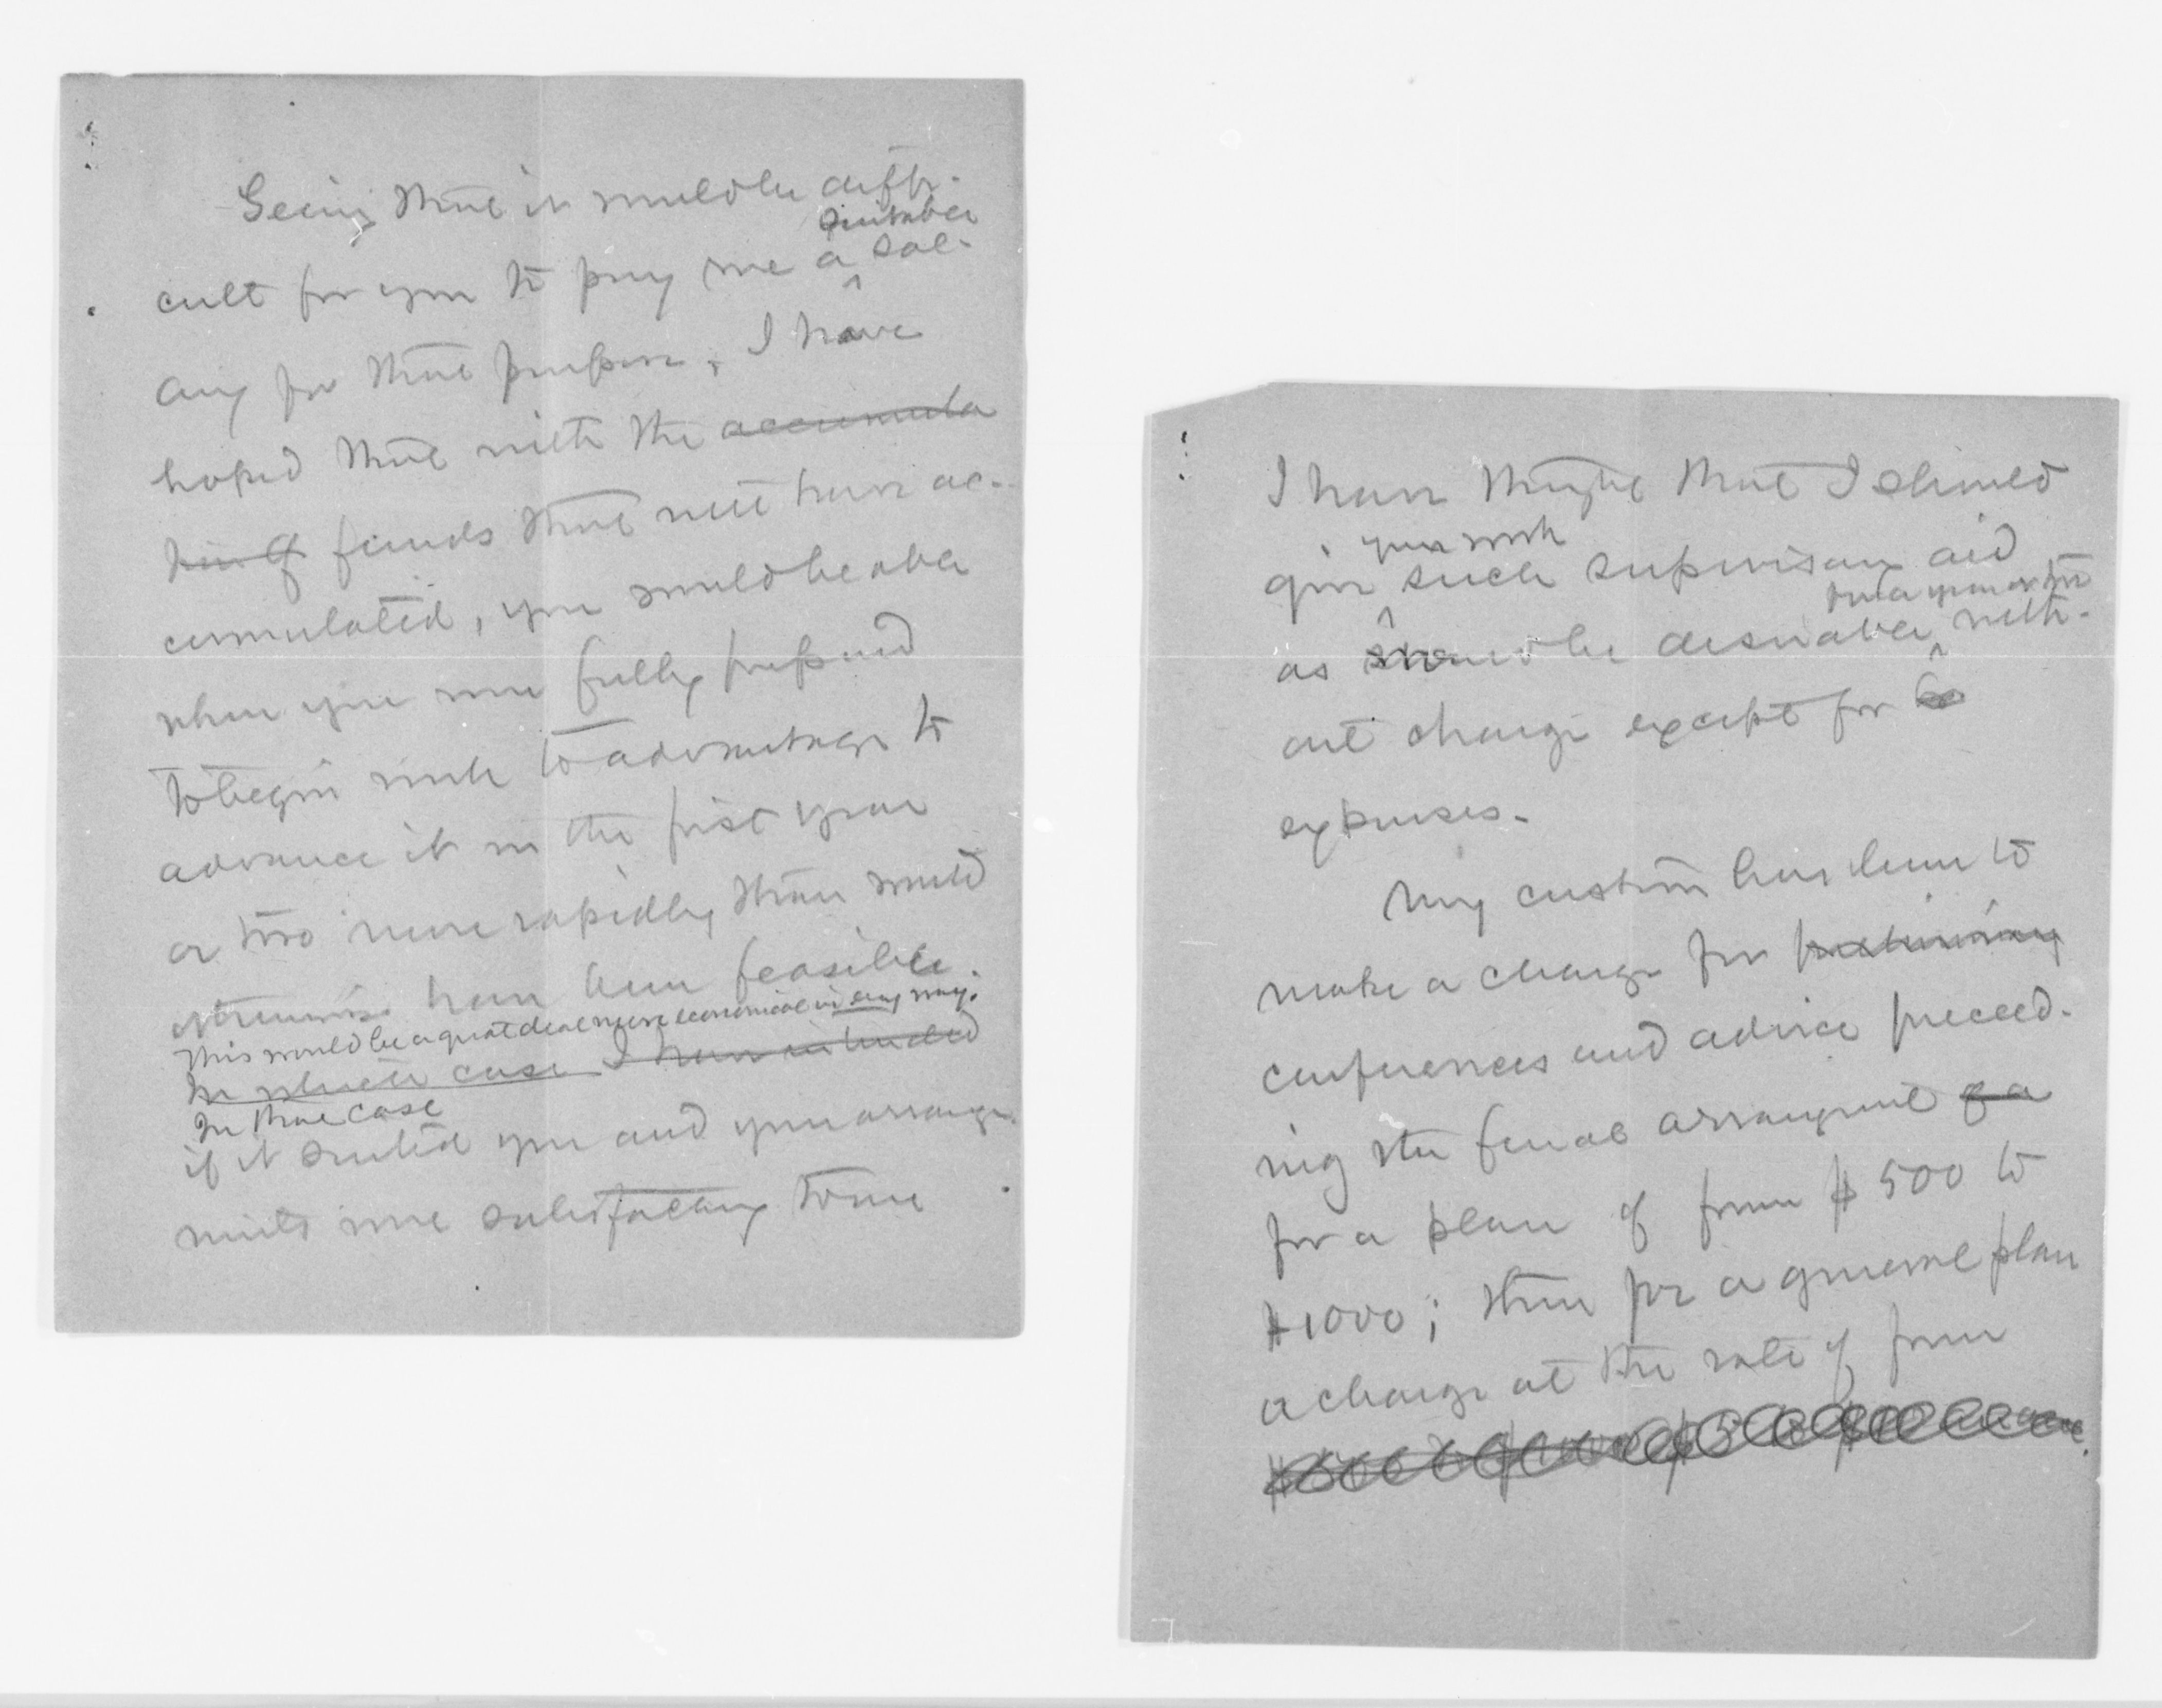 Seeing that it would be diffi-
suitable
cult for you to pay me a ^ sal-
ary for that purpose, I have
hoped that with the accumula
funds that will have ac-
cumulated, you would be able
when you were fully prepared
to begin work to advantage to
advance it in the first year
or two more rapidly than would
otherwise have been feasible.
This would be a great deal more economical in any way.
In which case I have intended
In that case
if it suited you and your arrange-
ments were satisfactory to me
I have thought that I should
your work
give ^ such supervisory aid
for a year or two
as should be desirable ^ with-
out charge except for
expenses.
My custom has been to
make a charge for preliminary
conferences and advice preced-
ing the final arrangement of a
for a plan of from $500 to
$1000; then for a general plan
a charge at the rate of from